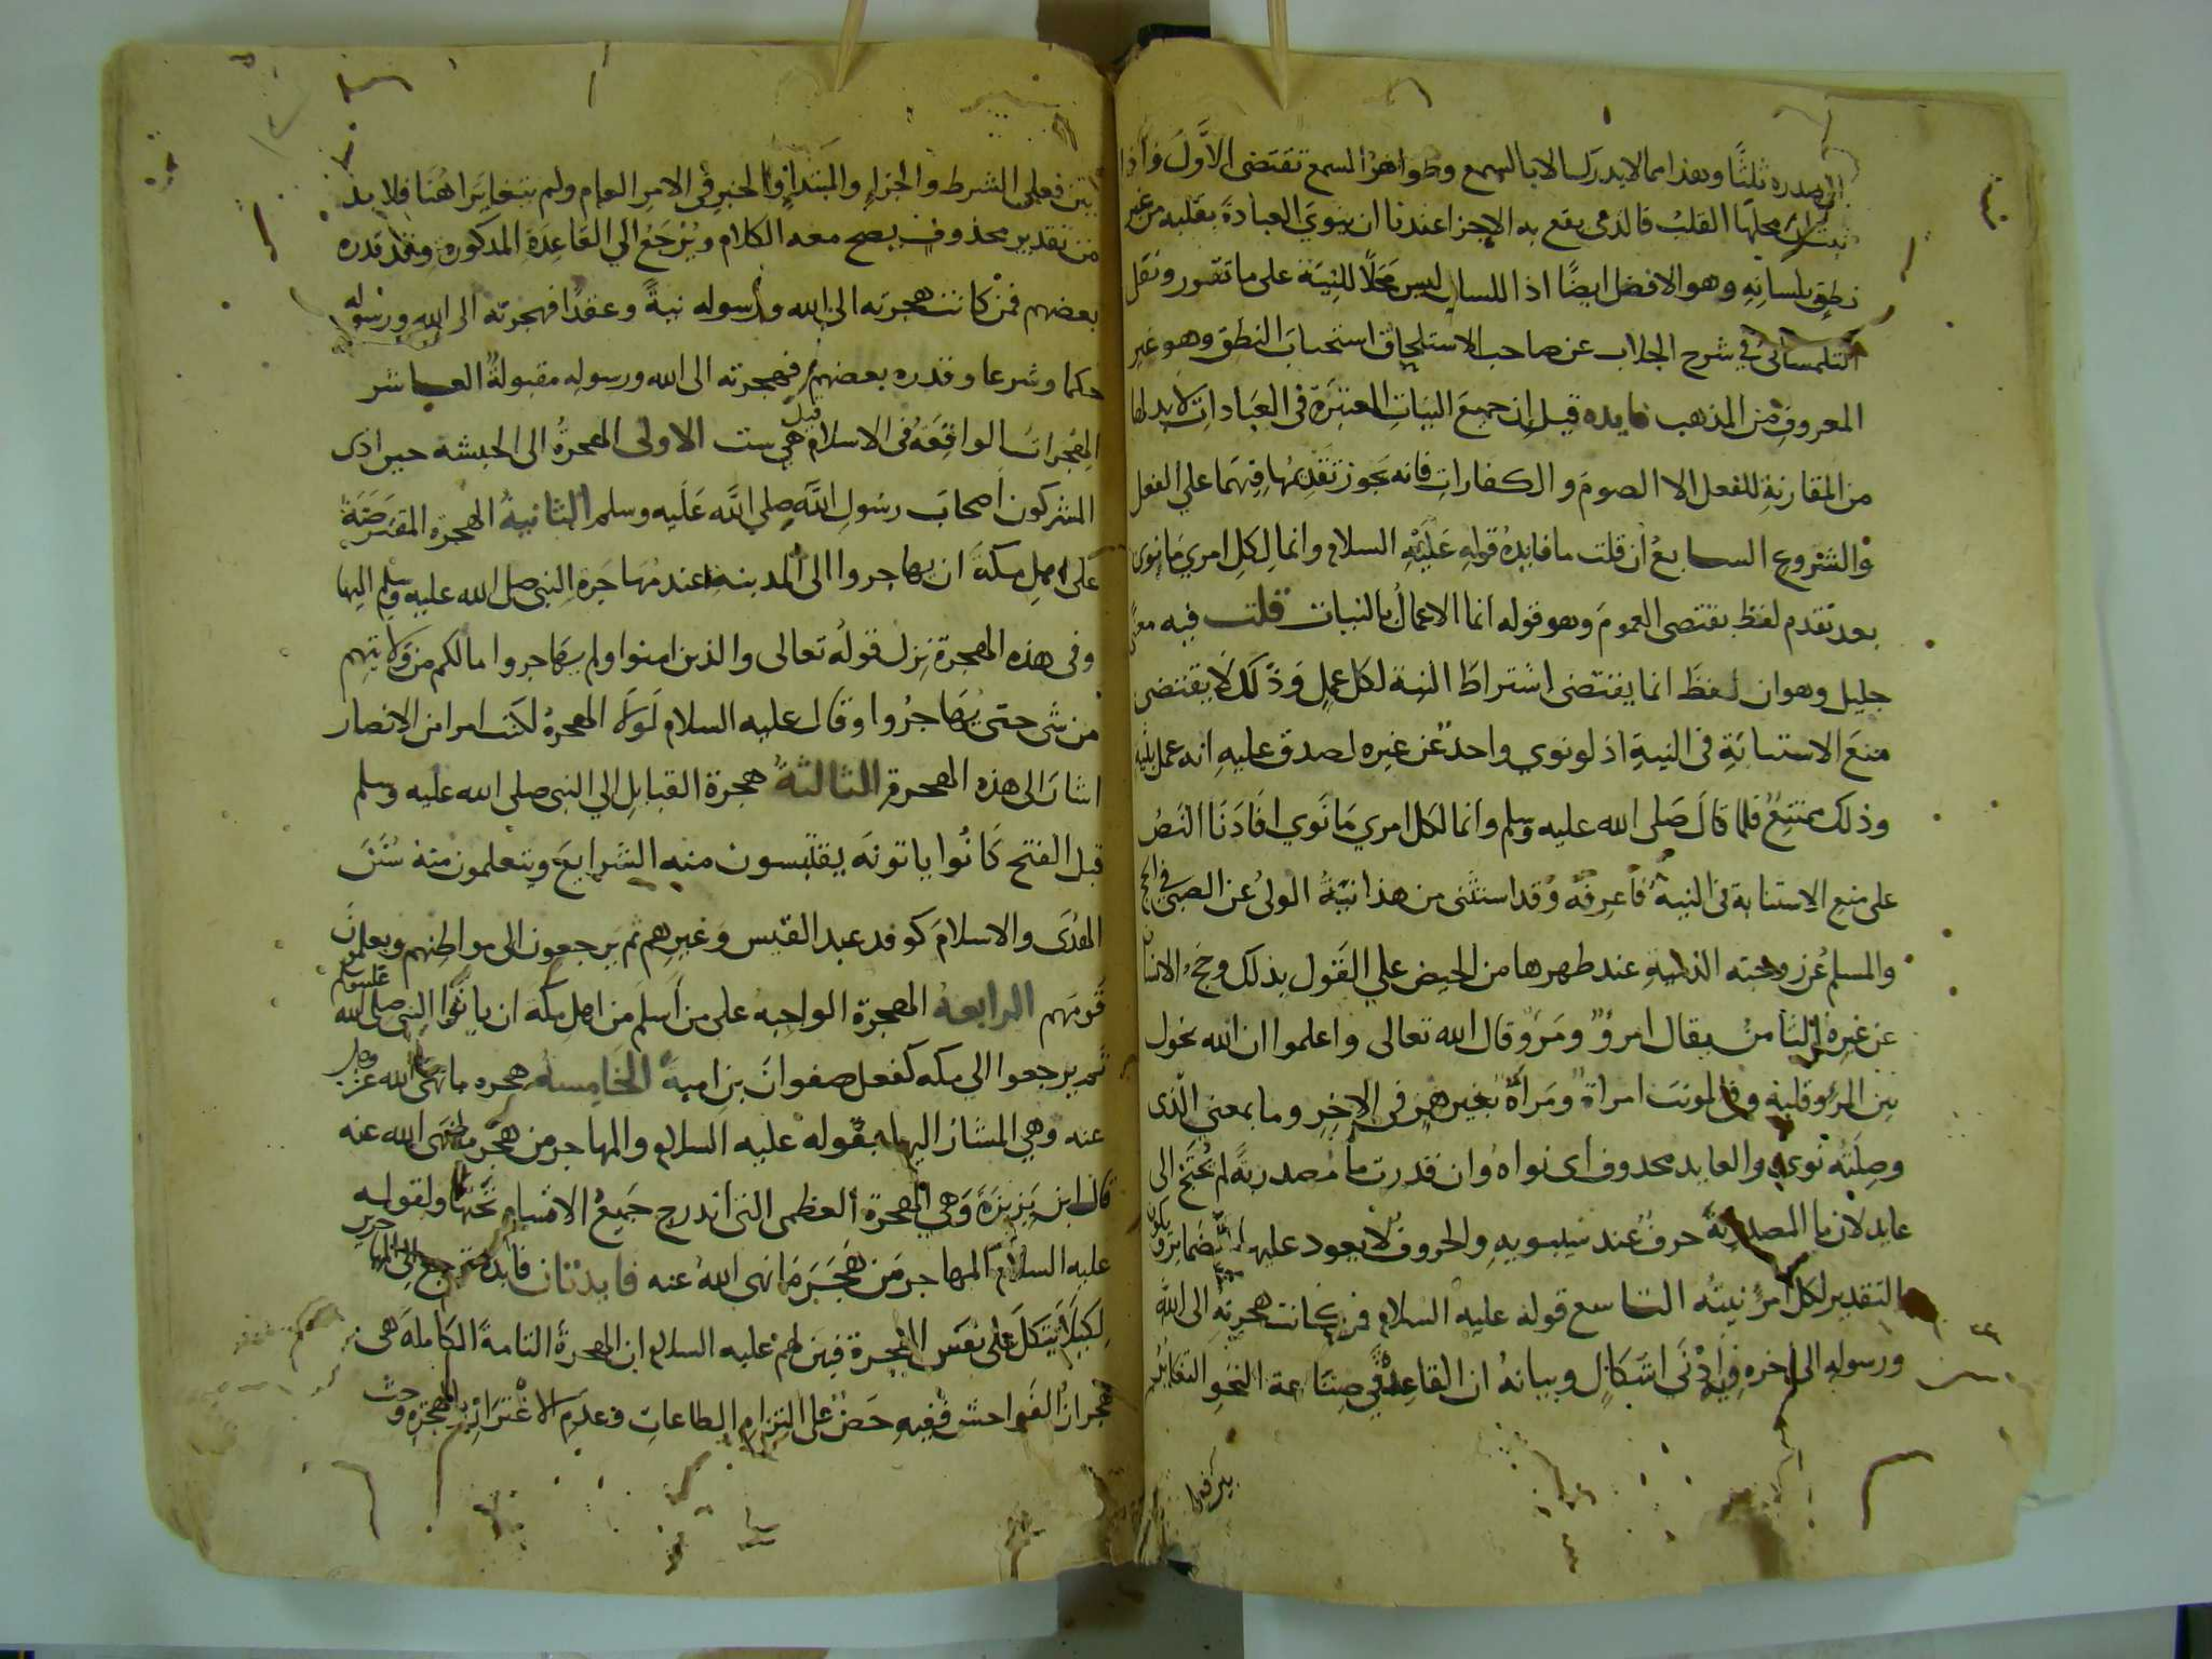 المصدره ثلثا وهذا مما لا يدرك الا بالسمع وظواهر السمع تقتضى الاول واذا
ثبت ان محلها القلب فالذى يقع به الاجزا عندنا ان ينوي العبادة بقلبه من غير
نطق بلسانه وهو الافضل ايضا اذ اللسان ليس محلا للنية على ما تقرر ونقل
التلمسانى في شرح الجلاب عن صاحب الاستلحاق استحباب النطق وهو غير
المعروف من المذهب فايده قيل ان جميع النيات المعتبرة فى العبادات لا بد لها
من المقارنة للفعل الا الصوم والكفارات فانه يجوز تقديمها فيهما علي الفعل
والشروع السابع ان قلت ما فايدة قوله عليه السلام وانما لكل امري ما نوى
بعد تقدم لفظ يقتضى العموم وهو قوله انما الاعمال بالنيات قلت فيه معنى
جليل وهو ان لفظ انما يقتضى اشتراط النية لكل عمل وذلك لا يقتضى
منع الاستنابة فى النية اذ لو نوي واحد عن غيره لصدق عليه انه عمل بنية
وذلك ممتنع فلما قال صلى الله عليه وسلم وانما لكل امري ما نوي افادنا النص
على منع الاستنابة فى النية فاعرفه وقد استثنى من هذا نية الولى عن الصبى فى الحج
والمسلم عن زوجته الذمية عند طهرها من الحيض علي القول بذلك وحج الانسان
عن غيره الثامن يقال امرؤ ومرؤ قال الله تعالى واعلموا ان الله يحول
بين المرء وقلبه وفى المونث امراة ومراة بغير همز فى الاخر وما بمعنى الذى
وصلته نوي والعايد محذوف اى نواه وان قدرت ما مصدرية لم تحتج الى
عايد لان ما المصدرية حرف عند سيبويه والحروف لا يعود عليها ضماير ويكون
التقدير لكل امرئ نيته التاسع قوله عليه السلام فمن كانت هجرته الى الله
ورسوله الى اخره فيه ادنى اشكال وبيانه ان القاعدة في صناعة النحو التغاير
بين فعلى
بين فعلى الشرط والجزاء والمبتدا والخبر فى الامر العام ولم يتغايرا هنا فلا بد
من تقدير محذوف يصح معه الكلام ويرجع الي القاعدة المذكورة وقد قدره
بعضهم فمن كانت هجرته الى الله ورسوله نية وعقدا فهجرته الى الله ورسوله
حكما وشرعا وقدره بعضهم فهجرته الى الله ورسوله مقبولة العاشر
الهجرات الواقعة فى الاسلام قيل هي ست الاولى الهجرة الى الحبشة حين اذى
المشركون اصحاب رسول الله صلي الله عليه وسلم الثانية الهجرة المفترضة
على اهل مكة ان يهاجروا الى المدينة عند مهاجرة النبى صلى الله عليه وسلم اليها
وفى هذه الهجرة نزل قوله تعالى والذين امنوا ولم يهاجروا ما لكم من ولايتهم
من شى حتى يهاجروا وقال عليه السلام لولا الهجرة لكنت امرا من الانصار
اشار الى هذه الهجرة الثالثة هجرة القبايل الي النبى صلى الله عليه وسلم
قبل الفتح كانوا ياتونه يقتبسون منه الشرايع ويتعلمون منه سنن
الهدى والاسلام كوفد عبد القيس وغيرهم ثم يرجعون الى مواطنهم ويعلمون
قومهم الرابعة الهجرة الواجبه على من اسلم من اهل مكه ان ياتوا النبى صلى الله عليه وسلم
ثم يرجعوا الي مكه كفعل صفوان بن امية الخامسة هجره ما نهى الله عز وجل
عنه وهي المشار اليها بقوله عليه السلام والمهاجر من هجر ما نهى الله عنه
قال ابن بزيزة وهي الهجرة العظمى التى اندرج جميع الاقسام تحتها ولقوله
عليه السلام المهاجر من هجر ما نهى الله عنه فايدتان فايدة ترجع الى المهاجرين
لكيلا يتكل على نفس الهجرة فبين لهم عليه السلام ان الهجرة التامة الكاملة هى
هجران الفواحش ففيه حض على التزام الطاعات وعدم الاغترار بالهجرة وحث